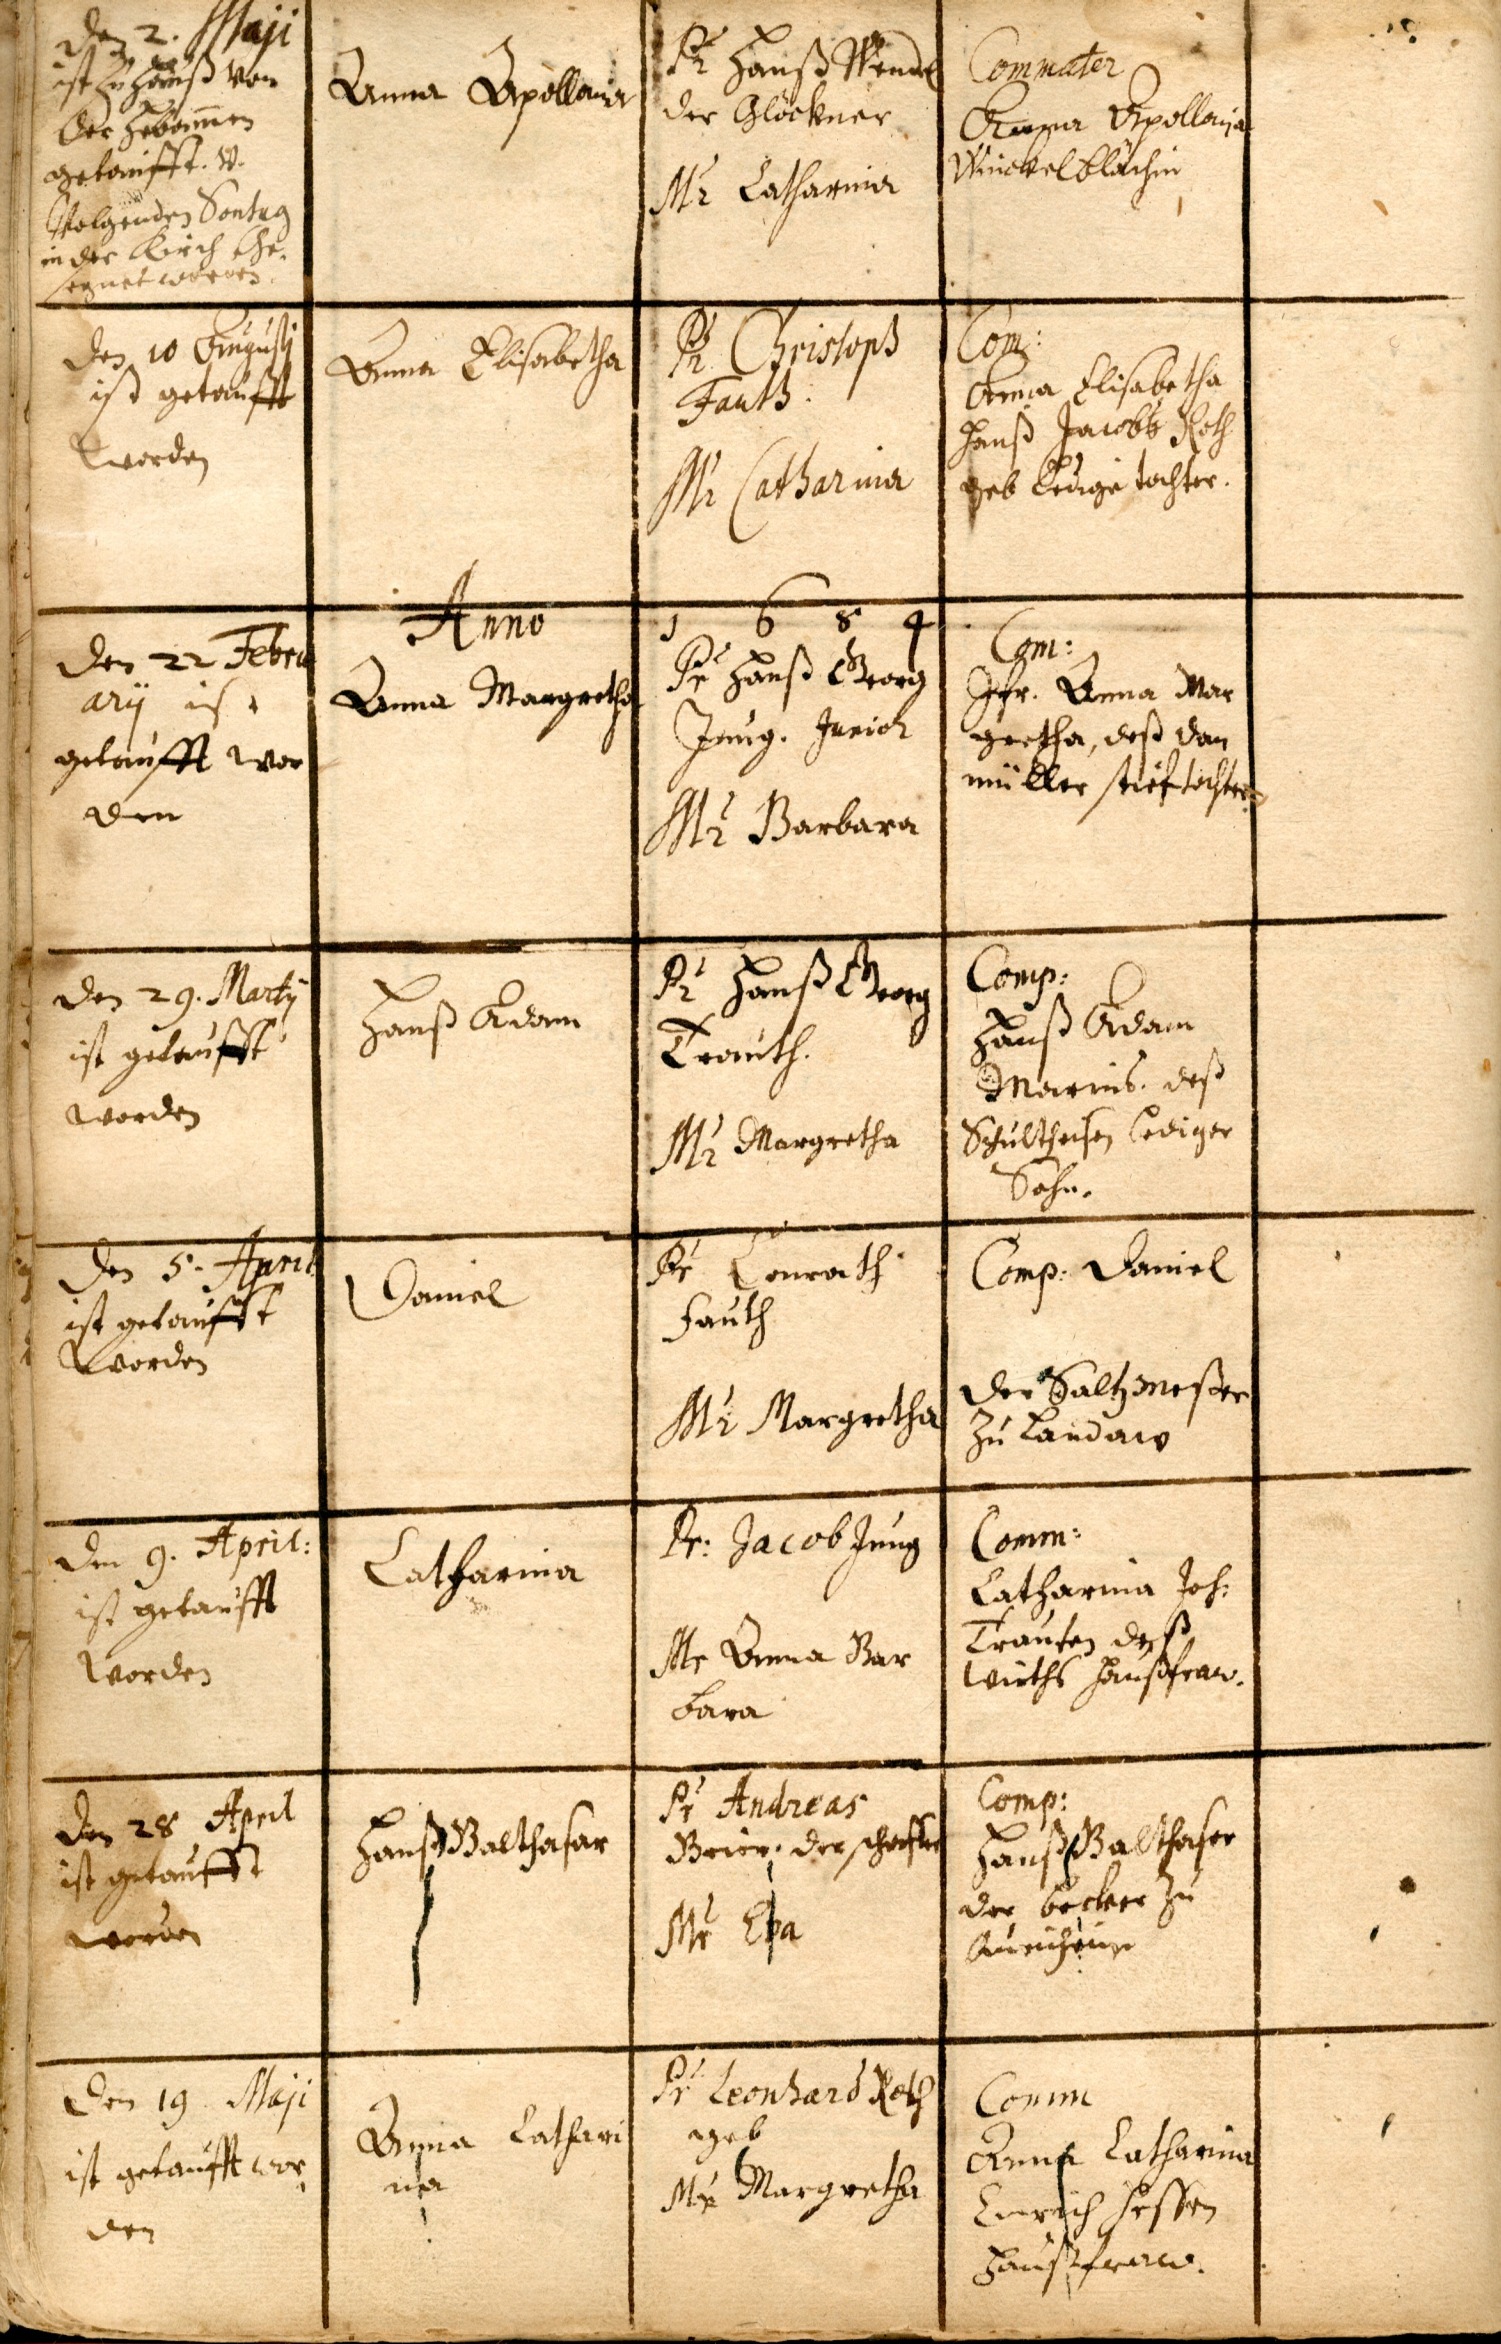 den 2. Maji
ist zu Hauß von
der Hebammen
getaufft. v.
Volgenden Sontag
in der Kirch Ge-
segnet worden.
Anna Apollonia
Pr Hanß Wendel
der Glöckner
Mr Catharina
Commater
Anna Apollonia
Winckelblächin
den 10 Augusti
ist getaufft
worden
Anna Elisabetha
Pr Christoph
Fauth.
Mr Catharina
Com:
Anna Elisabetha
Hanß Jacobs Roth
geb ledige tochter.
Anno 1684
den 22 Febru
arij ist
getaufft wor
den
Anna Margretha
Pr Hanß Georg
Jung. Junior
Mr Barbara
Com:
Jfr. Anna Mar
gretha, deß dan
müller stieftochter
den 29. Martij
ist getaufft
worden
Hanß Adam
Pr Hanß Georg
Trauth.
Mr Margretha
Comp:
Hanß Adam
Marins. deß
Schultheisen lediger
Sohn.
den 5. April
ist getaufft
worden
Daniel
Pr Conrath
Fauth
Mr Margretha
Comp: Daniel
der Saltzmeßer
zu Landaw
den 9. April:
ist getaufft
worden
Catharina
Pr: Jacob Jung
Mr Anna Bar
bara
Comm:
Catharina Joh:
Trauten deß
wirths haußfraw.
den 28 April
ist getaufft
worden
Hanß Balthasar
Pr Andreas
Beier. der scheffer
Mr Eva
Comp:
Hanß Balthaser
der becker zu
den 19. Maji
ist getaufft wor
den
Anna Cathari
na
Pr Leonhard Roth
geb
Mr Margretha
Comm
Anna Catharina
Emrich Hessen
haußfraw.